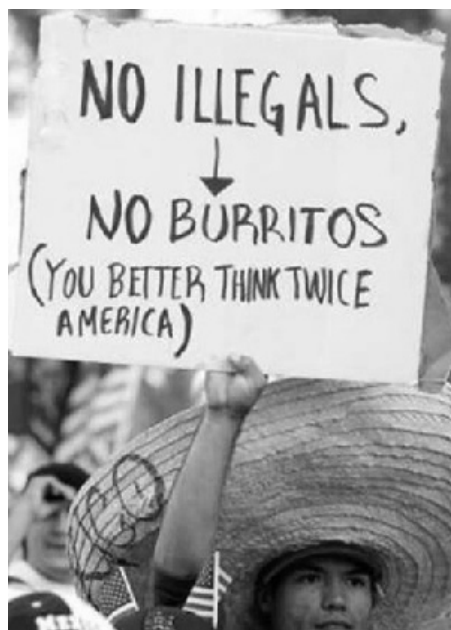 NO ILLEGALS,
NO BURRITOS
(YOU BETTER THINK TWICE
AMERICA)